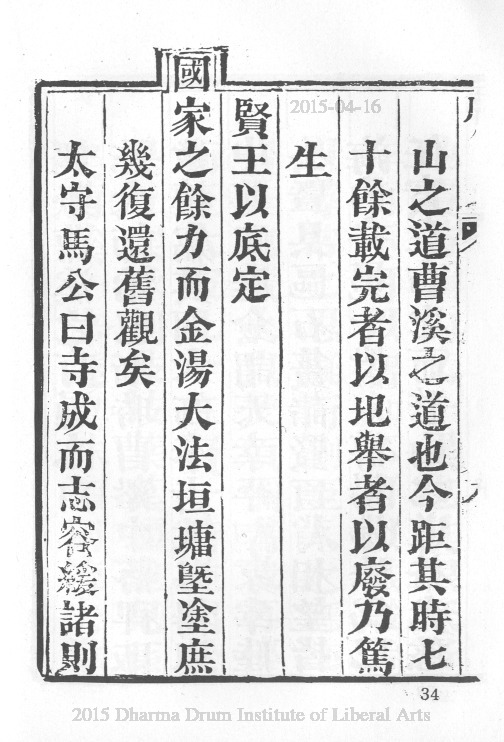 山之道曹溪之道也今距其時七
十餘載完者以圯舉者以廢乃篤
生
賢王以底定
國家之餘力而金湯大法垣墉塈塗庶
幾復還舊觀矣
太守馬公曰寺成而志容緩諸則
34
2015-04-16
2015 Dharma Drum Institute of Liberal Arts